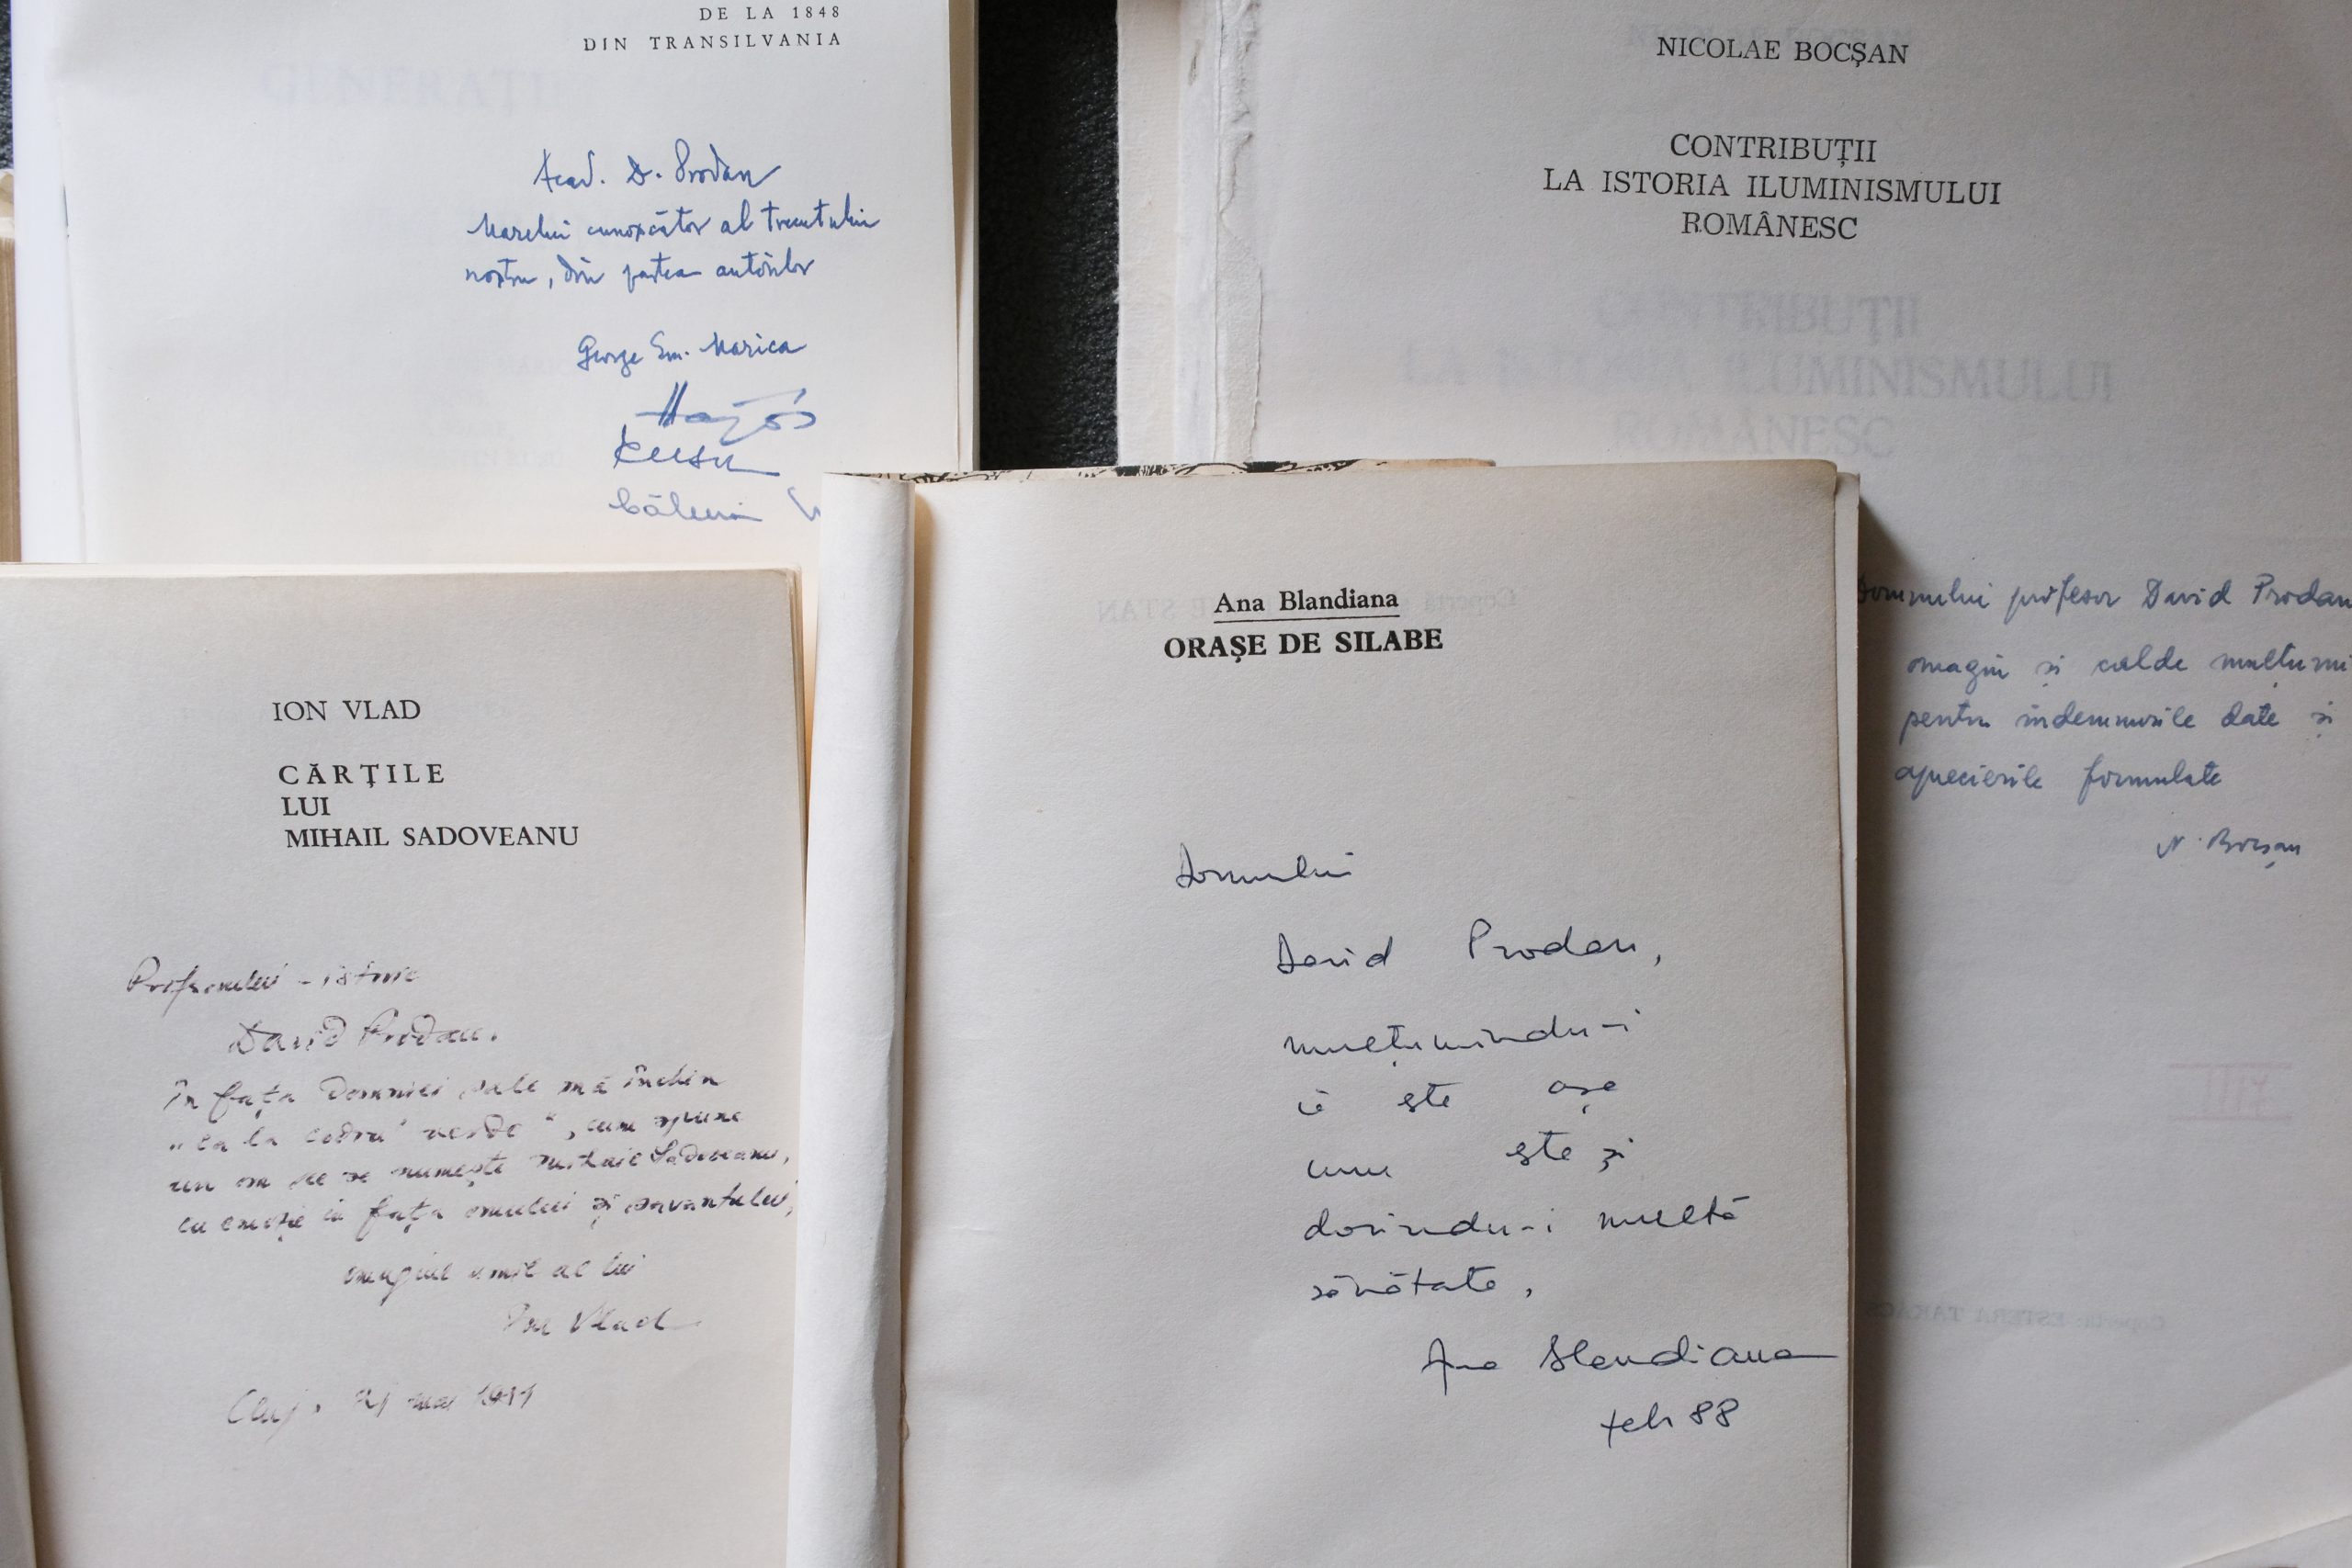 DE LA 1848
DIN TRANSILVANIA
Acad. D. Prodan
Marelui cunoscător al trecutului
nostru, din partea autorilor
George Em. Marica
Hajós
Călin
NICOLAE BOCȘAN
CONTRIBUȚII
LA ISTORIA ILUMINISMULUI
ROMÂNESC
Domnului profesor David Prodan
omagiu și calde mulțumi
pentru îndemnurile date și
aprecierile formulate
N. Bocșan
ION VLAD
CĂRȚILE
LUI
MIHAIL SADOVEANU
Profesorului - istoric
David Prodan.
În fața Domniei sale mă închin
„ca la codru' verde", cum spune
un om ce se numește Mihail Sadoveanu,
cu emoție în fața omului și savantului,
omagiul umil al lui
Ion Vlad
Cluj, mai 1981
Ana Blandiana
ORAȘE DE SILABE
Domnului
David Prodan,
mulțumindu-i
că este așa
cum este și
dorindu-i multă
sănătate,
Ana Blandiana
feb 88